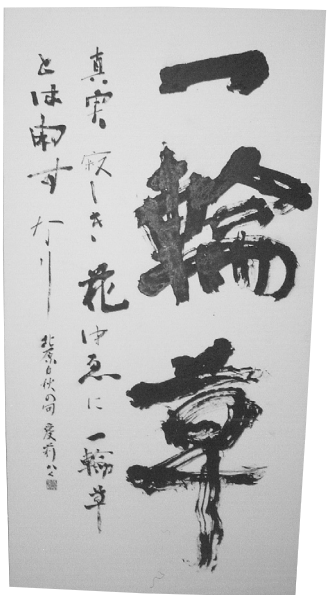 一輪草
真実寂しき花ゆゑに一輪草
とは申すなり
北原白秋の